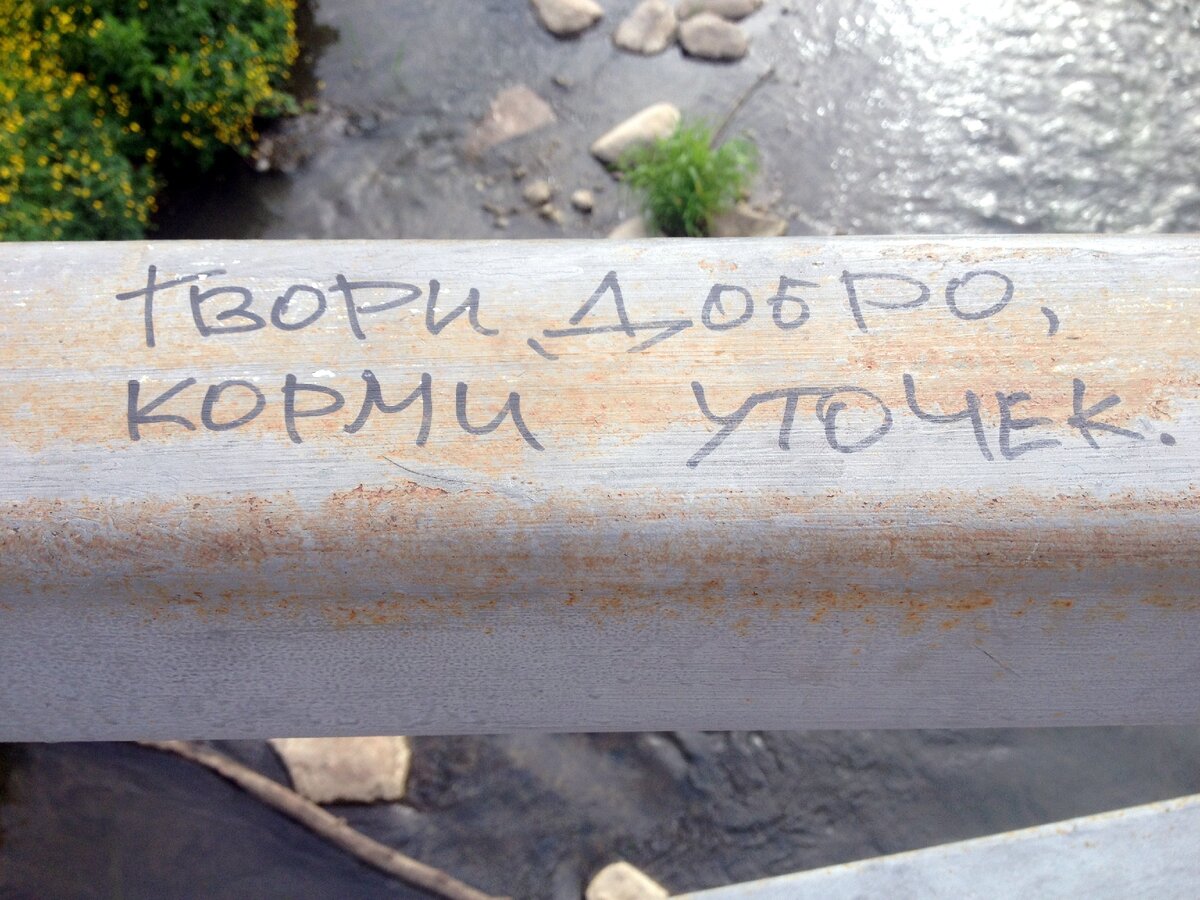 ТВОРИ ДОБРО,
КОРМИ УТОЧЕК.